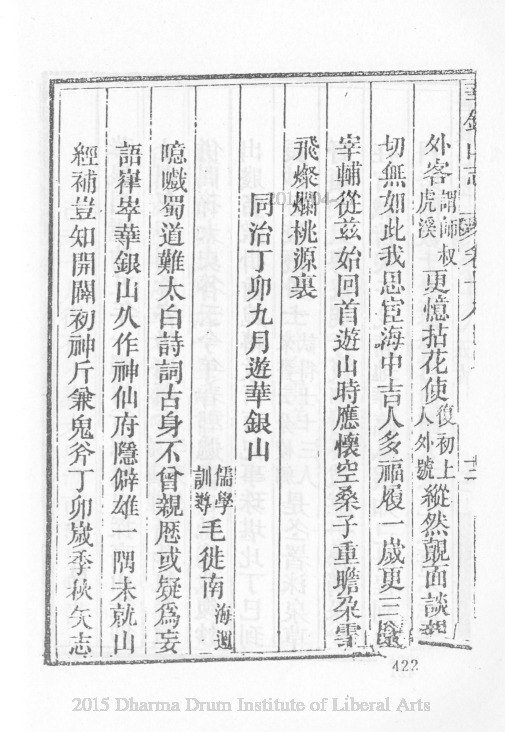 華銀山志 卷十八
外客謂師叔虎溪更憶拈花使復初上人外號縱然覿面談
切無如此我思宦海中吉人多福履一歲更三
宰輔從茲始回首遊山時應懷空桑子重瞻朵雲
飛燦爛桃源裏
同治丁卯九月遊華銀山
儒學訓導毛徙南海選
噫嚱蜀道難太白詩詞古身不曾親歷或疑爲妄
語嵂崒華銀山久作神仙府隱僻雄一隅未就山
經補豈知開闢初神斤兼鬼斧丁卯歲季秋矢志
422
2015 Dharma Drum Institute of Liberal Arts